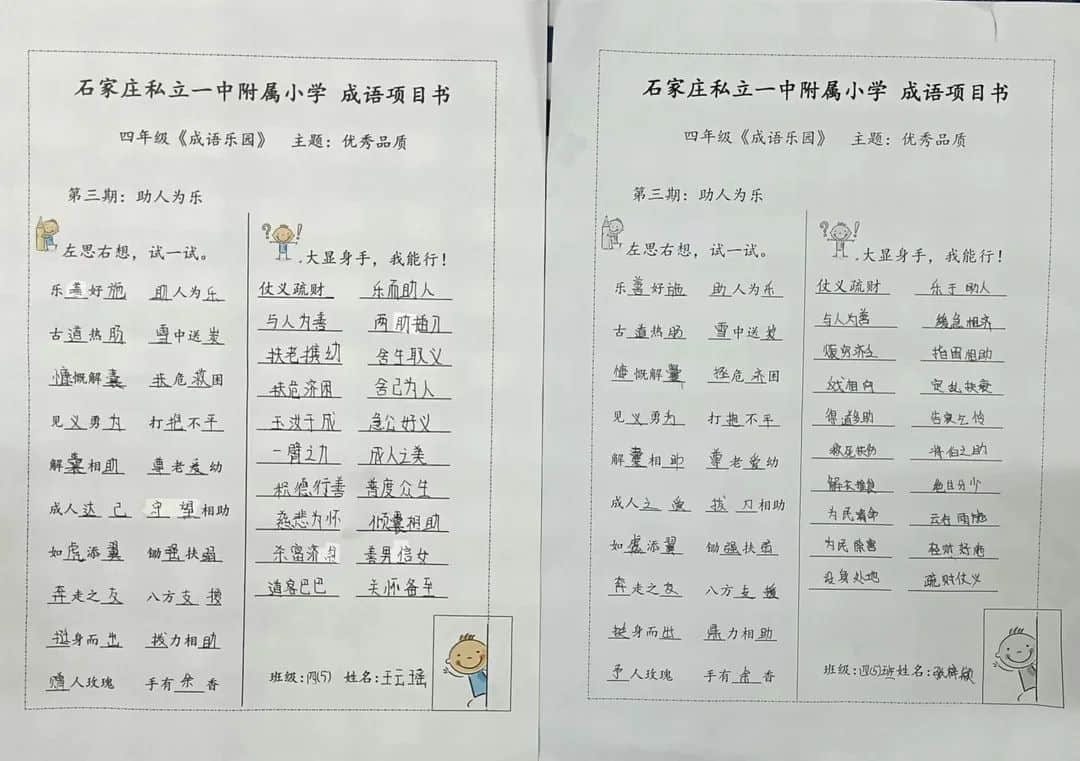 石家庄私立一中附属小学 成语项目书
四年级《成语乐园》 主题：优秀品质
第三期：助人为乐
左思右想，试一试。
乐善好施 助人为乐
古道热肠 雪中送炭
慷慨解囊 扶危救困
见义勇为 打抱不平
解囊相助 尊老爱幼
成人达己 守望相助
如虎添翼 锄强扶弱
奔走之友 八方支援
挺身而出 拔力相助
赠人玫瑰 手有余香
大显身手，我能行！
仗义疏财 乐而助人
与人为善 两肋插刀
扶老携幼 舍生取义
扶危济困 舍己为人
玉汝于成 急公好义
一臂之力 成人之美
积德行善 普度众生
慈悲为怀 倾囊相助
杀富济贫 善男信女
逍客巴巴 关怀备至
班级：四(5) 姓名：王云瑶
石家庄私立一中附属小学 成语项目书
四年级《成语乐园》 主题：优秀品质
第三期：助人为乐
左思右想，试一试。
乐善好施 助人为乐
古道热肠 雪中送炭
慷慨解囊 拯危济困
见义勇为 打抱不平
解囊相助 尊老爱幼
成人之美 拔刀相助
如虎添翼 锄强扶弱
奔走之友 八方支援
挺身而出 鼎力相助
予人玫瑰 手有余香
大显身手，我能行！
仗义疏财 乐于助人
与人为善 缓急相济
指囷相助
定乱扶衰
得道多助 告哀乞怜
救死扶伤 将伯之助
解衣推食 绝甘分少
为民请命 云布雨施
为民除害 轻财好施
设身处地 疏财仗义
班级：四(5)班姓名：张梓颖